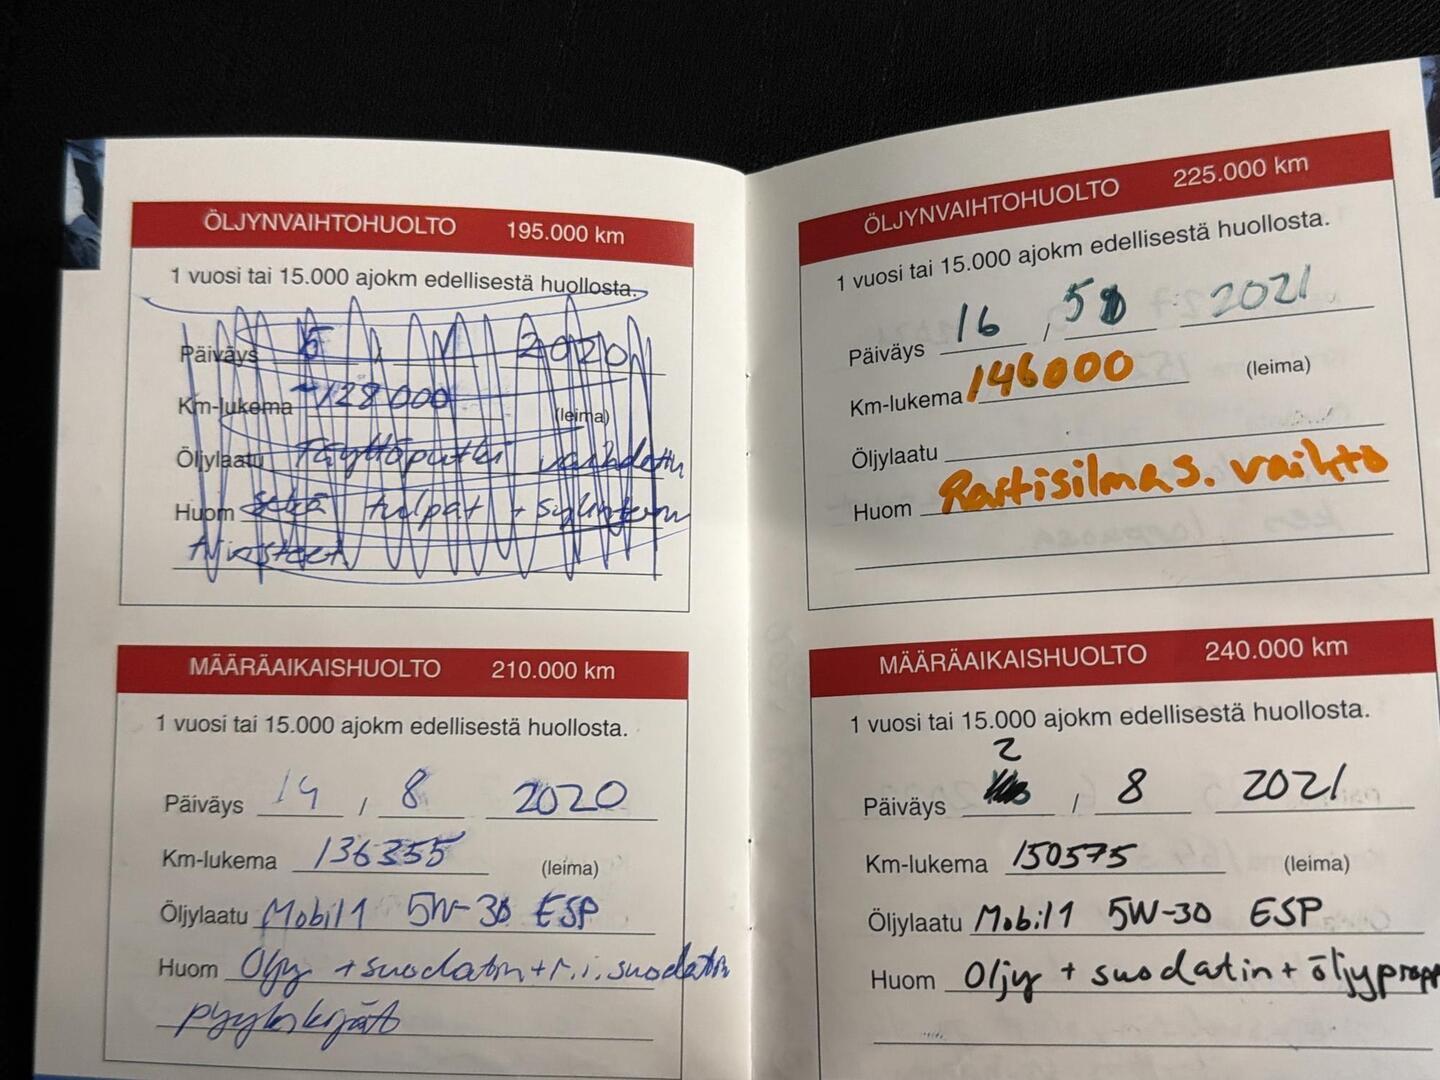 ÖLJYNVAIHTOHUOLTO 195.000 km
1 vuosi tai 15.000 ajokm edellisestä huollosta.
Päiväys 5 / 2020
Km-lukema ~128000 (leima)
Öljylaatu Täyttöputki vaihdettu
Huom sekä tulpat + sylinterin
tiivisteet.
MÄÄRÄAIKAISHUOLTO 210.000 km
1 vuosi tai 15.000 ajokm edellisestä huollosta.
Päiväys 14 / 8 2020
Km-lukema 136355 (leima)
Öljylaatu Mobil1 5W-30 ESP
Huom Öljy + suodatin + r.i. suodatin
pyyhkijät
ÖLJYNVAIHTOHUOLTO 225.000 km
1 vuosi tai 15.000 ajokm edellisestä huollosta.
Päiväys 16 / 5 2021
Km-lukema 146000 (leima)
Öljylaatu
Huom Raitisilmas. vaihto
MÄÄRÄAIKAISHUOLTO 240.000 km
1 vuosi tai 15.000 ajokm edellisestä huollosta.
Päiväys 2 / 8 2021
Km-lukema 150575 (leima)
Öljylaatu Mobil1 5W-30 ESP
Huom Öljy + suodatin + öljypropp